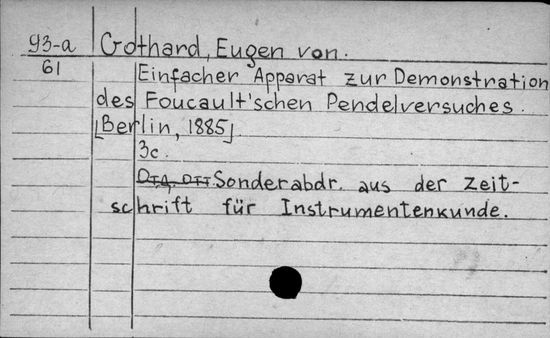 93-a Gothard, Eugen von.
61 Einfacher Apparat zur Demonstration
des Foucault'schen Pendelversuches.
[Berlin, 1885].
3c.
Sonderabdr. aus der Zeit-
schrift für Instrumentenkunde.